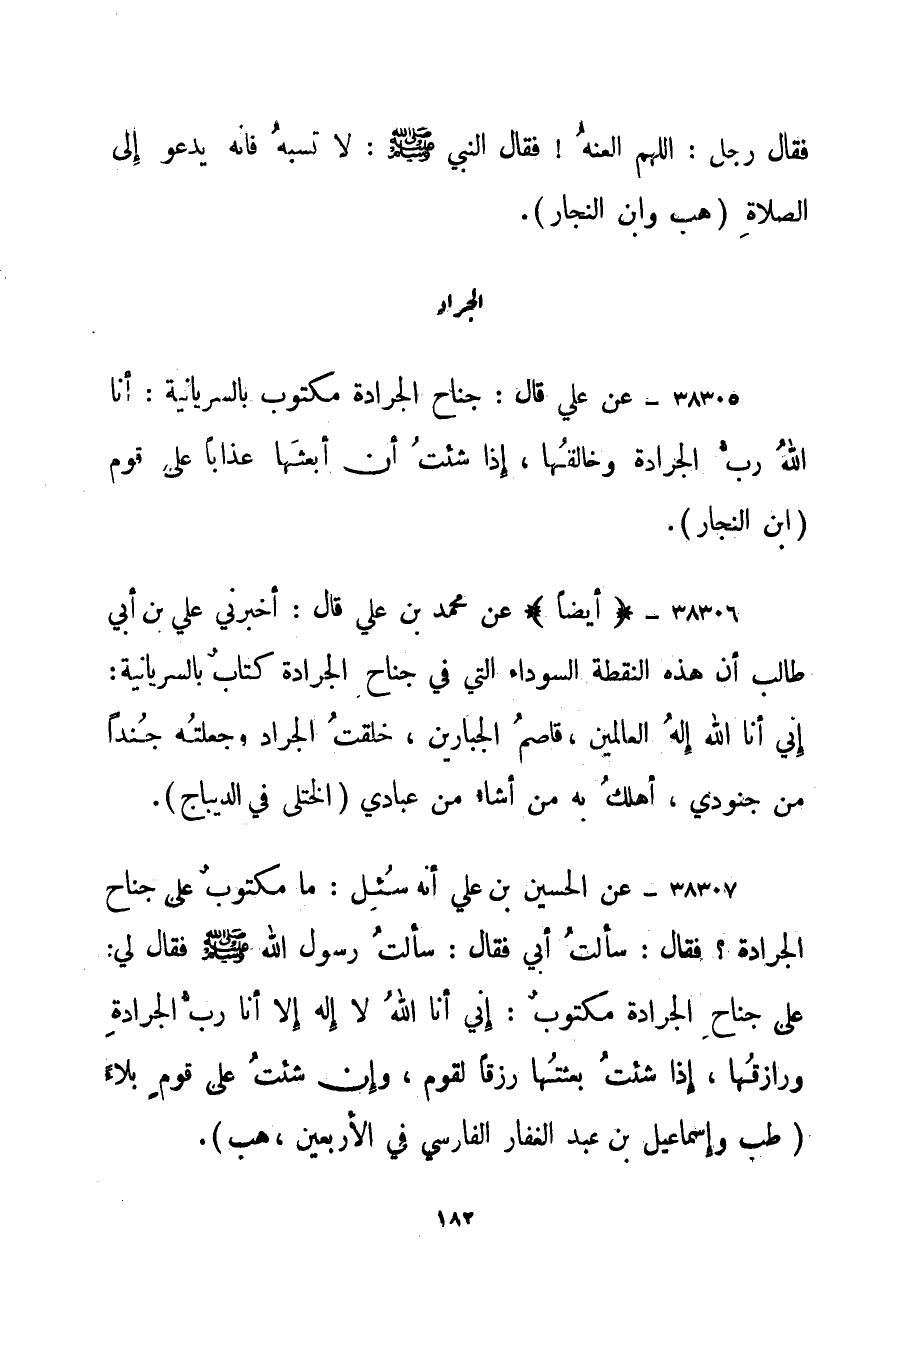 فقال رجل : اللهم العنهُ ! فقال النبي ﷺ : لا تسبهُ فانه يدعو إلى
الصلاةِ (هب وابن النجار).
الجراد
٣٨٣٠٥ ـ عن علي قال : جناح الجرادة مكتوب بالسريانية : أنا
اللهُ ربُّ الجرادة وخالقُها ، إذا شئتُ أن أبعثَها عذاباً على قوم
(ابن النجار).
٣٨٣٠٦ ـ ﴿ أيضاً ﴾ عن محمد بن علي قال : أخبرني علي بن أبي
طالب أن هذه النقطة السوداء التي في جناحِ الجرادة كتابٌ بالسريانية :
إني أنا الله إلهُ العالمين ، قاصمُ الجبارين ، خلقتُ الجراد وجعلتُه جُنداً
من جنودي ، أهلكُ به من أشاء من عبادي (الختلى في الديباج).
٣٨٣٠٧ ـ عن الحسين بن علي أنه سُئِل : ما مكتوبٌ على جناح
الجرادة ؟ فقال : سألتُ أبي فقال : سألتُ رسول الله ﷺ فقال لي :
على جناحِ الجرادة مكتوبٌ : إني أنا اللهُ لا إله إلا أنا ربُّ الجرادةِ
ورازقُها ، إذا شئتُ بعثتُها رزقاً لقوم ، وإن شئتُ على قومٍ بلاءً
( طب وإسماعيل بن عبد الغفار الفارسي في الأربعين ، هب).
١٨٢